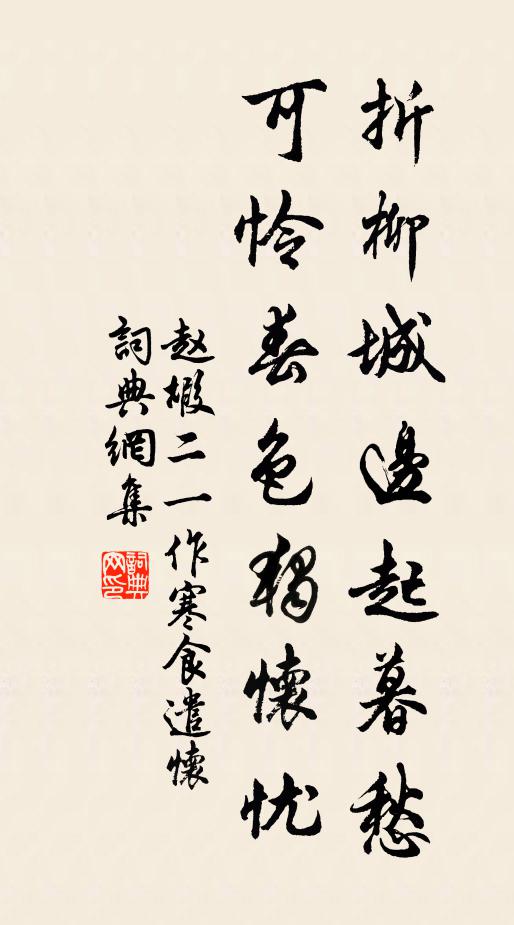 折柳城邊起暮愁
可怜春色獨懷忧
赵嘏二一作寒食遣懷
詞典網集
詞典网印